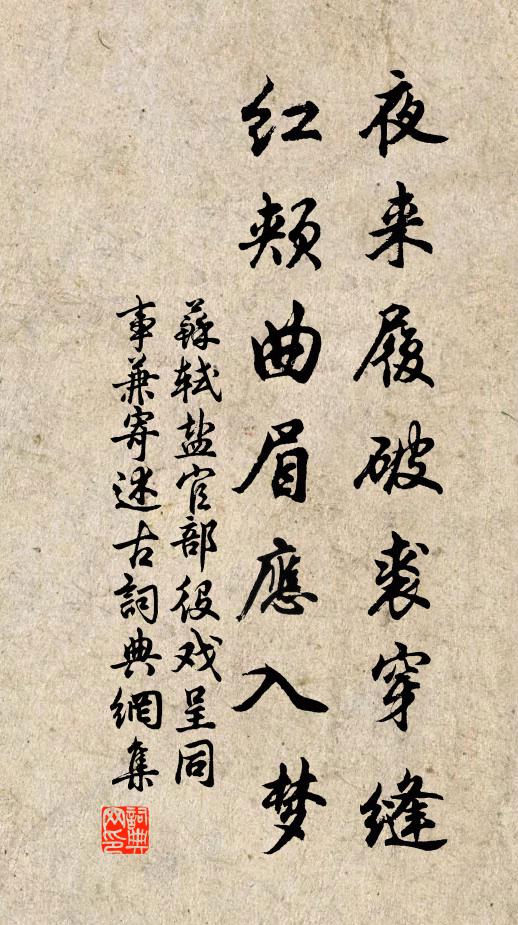 夜来履破裘穿缝
红颊曲眉應入梦
蘇軾盐官部役戏呈同
事兼寄述古詞典網集
詞典网印